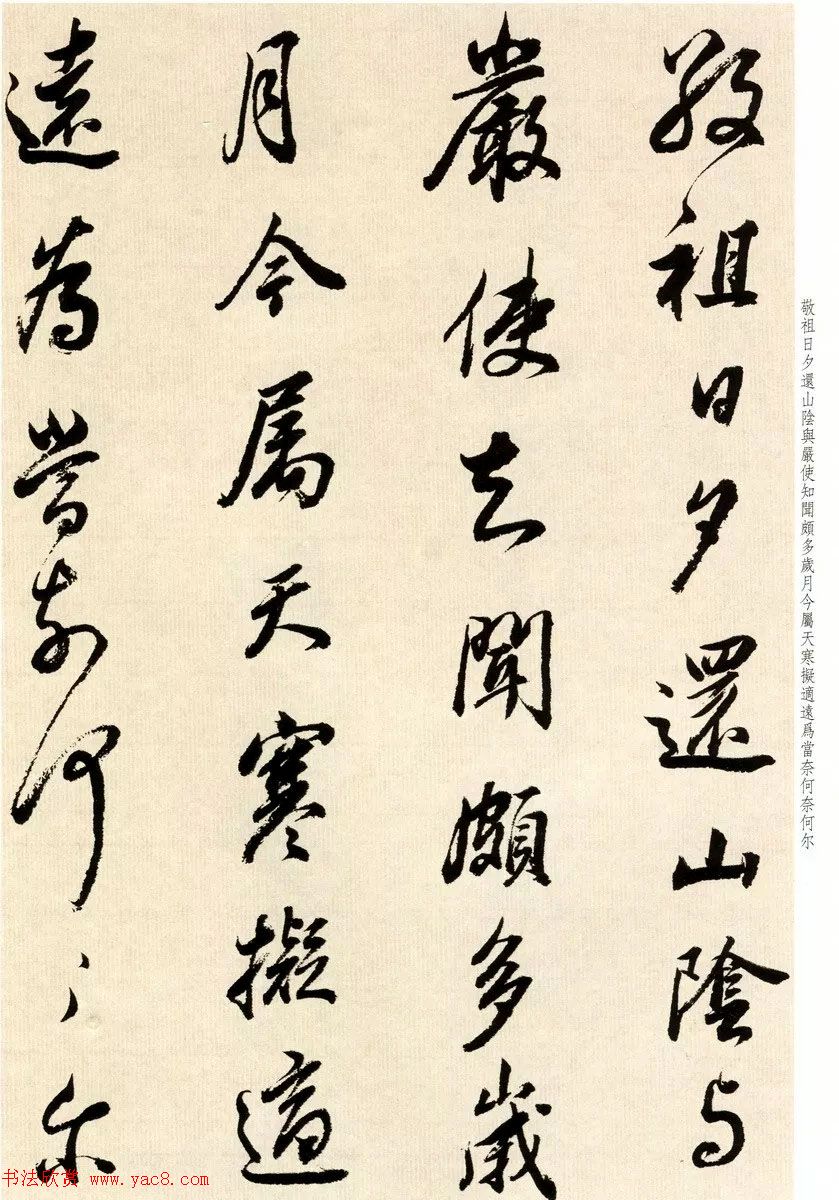 敬祖日夕還山陰与
嚴使知聞頗多歲
月今属天寒擬適
遠為當奈何〻尔
敬祖日夕還山陰與嚴使知聞頗多歲月今屬天寒擬適遠爲當奈何奈何尔
书法欣赏 www.yac8.com